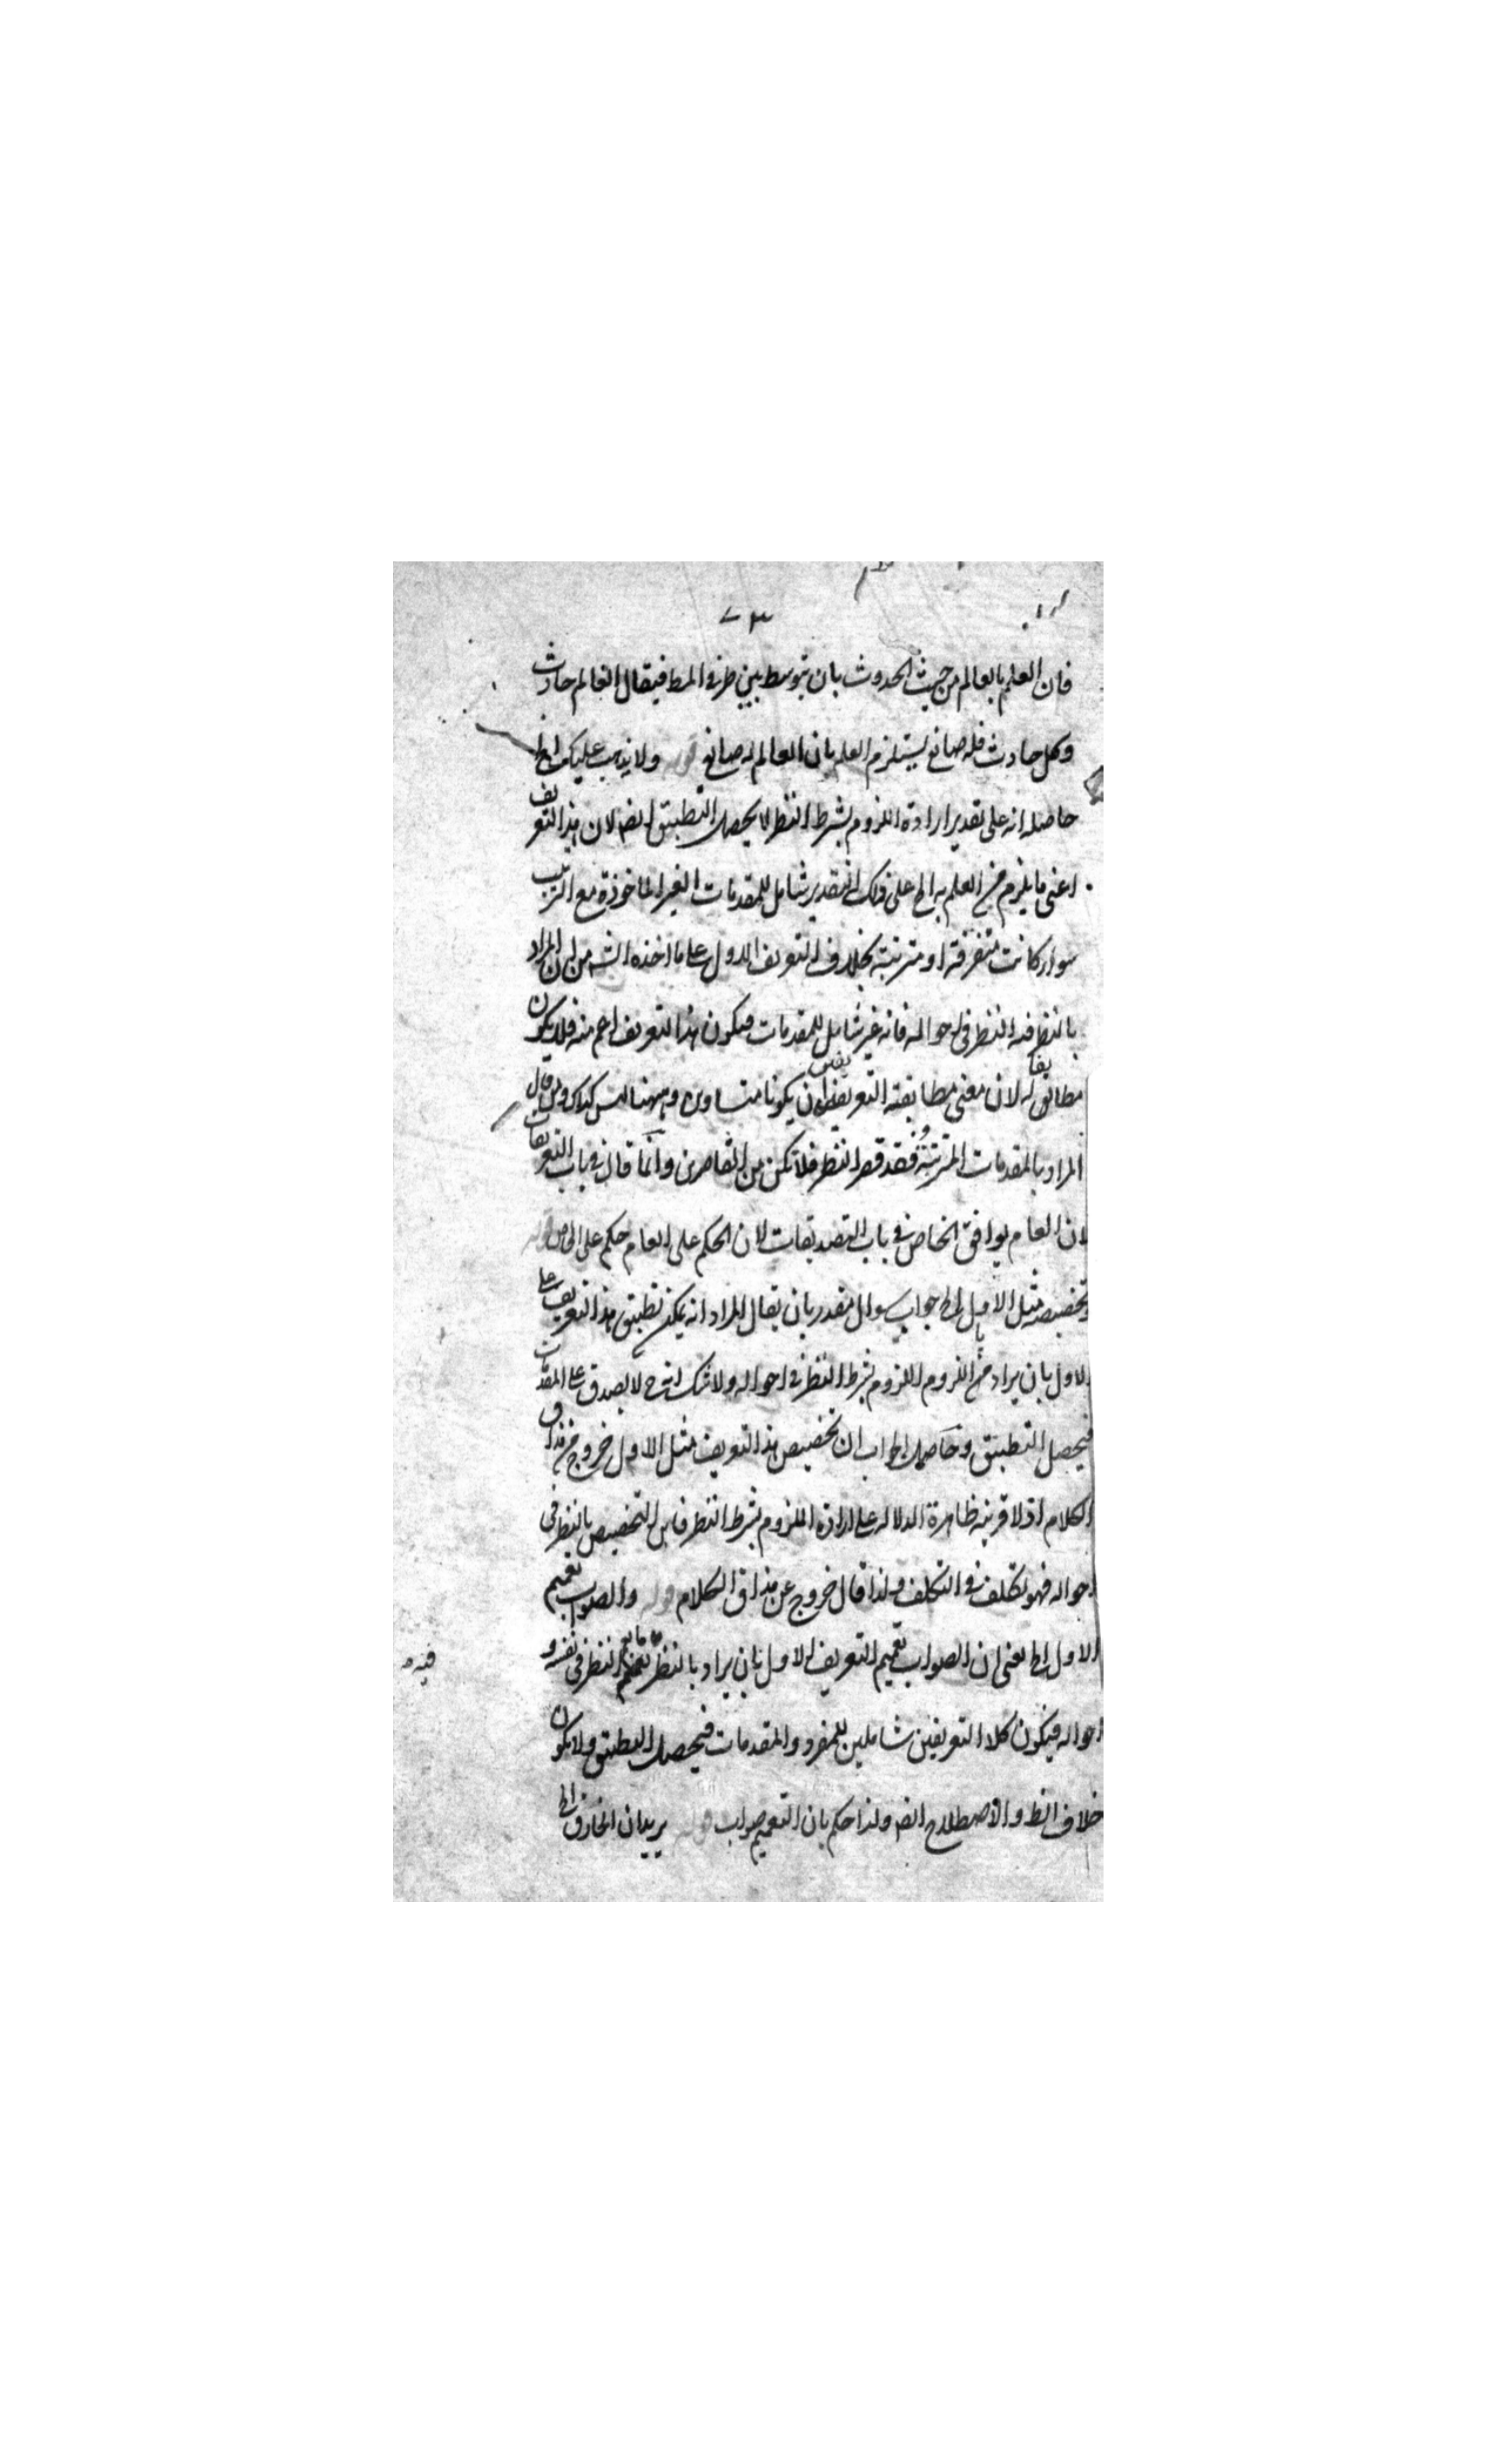 ٧٣
فان العلم بالعالم من حيث الحدوث بان يتوسط بين طرفي المط فيقال العالم حادث
وكل حادث فله صانع يستلزم العلم بان العالم له صانع قوله ولا يذهب عليك الخ
حاصله انه على تقدير ارادة اللزوم بشرط النظر لا يحصل التطبيق ايضا لان هذا التعريف
اعني ما يلزم من العلم به الخ على ذلك التقدير شامل للمقدمات الغير الماخوذة مع الترتيب
سواء كانت متفرقة او مترتبة بخلاف التعريف الاول على ما اخذه الش من ان المراد
بالنظر فيه النظر في احواله فانه غير شامل للمقدمات فيكون هذا التعريف اعم منه فلا يكون
مطابقا له لان معنى مطابقة التعريفين ان يكونا متساويين وههنا ليس كذلك ومن قال
المراد بالمقدمات المترتبة فقد قصر النظر فلا تكن من القاصرين وانما قال في باب التعريفات
لان العام يوافق الخاص في باب التصديقات لان الحكم على العام حكم على الخاص قوله
وتخصيصه مثل الاول الخ جواب سوال مقدر بان يقال المراد انه يمكن تطبيق هذا التعريف على
الاول بان يراد من اللزوم اللزوم بشرط النظر في احواله ولا شك انه ح لا يصدق على المقدمات
فيحصل التطبيق وحاصل الجواب ان تخصيص هذا التعريف مثل الاول خروج من مذاق
الكلام اذ لا قرينة ظاهرة الدلالة على ارادة اللزوم بشرط النظر فاين التخصيص بالنظر في
احواله فهو تكلف في التكلف ولذا قال خروج عن مذاق الكلام قوله والصواب تعميم
الاول الخ يعني ان الصواب تعميم التعريف الاول بان يراد بالنظر ما يعم النظر في نفسه و
فيه
احواله فيكون كلا التعريفين شاملين للمفرد والمقدمات فيحصل التطبيق ولا يكون
خلاف الظ والاصطلاح ايضا ولذا حكم بان التعميم صواب قوله يريد ان الخارق الخ